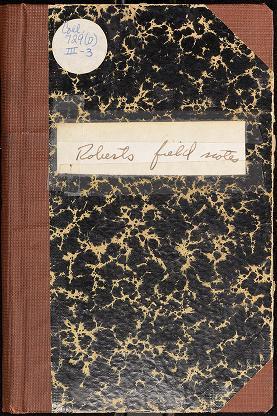 Coll.
729(D)
III-3
Roberts field notes